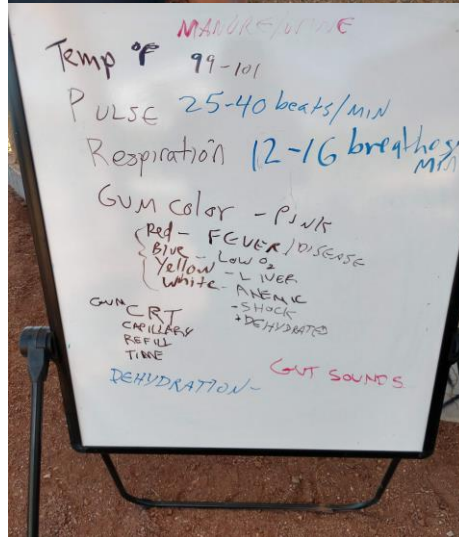 MANURE/URINE
Temp °F 99-101
PULSE 25-40 beats/MIN
Respiration 12-16 breathes/
MIN
GUM COLOR - PINK
Red - FEVER/DISEASE
Blue - LOW O2
Yellow - LIVER
White - ANEMIC
- SHOCK
+ DEHYDRATED
GUM
CRT
CAPILLARY
REFILL
TIME
DEHYDRATION-
GUT SOUNDS